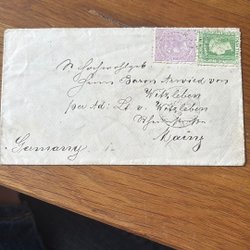 Sr Hochwohlgeb.
Herrn Baron Arwied von
Witzleben
per Ad: Lt v. Witzleben
Mainz
Germany